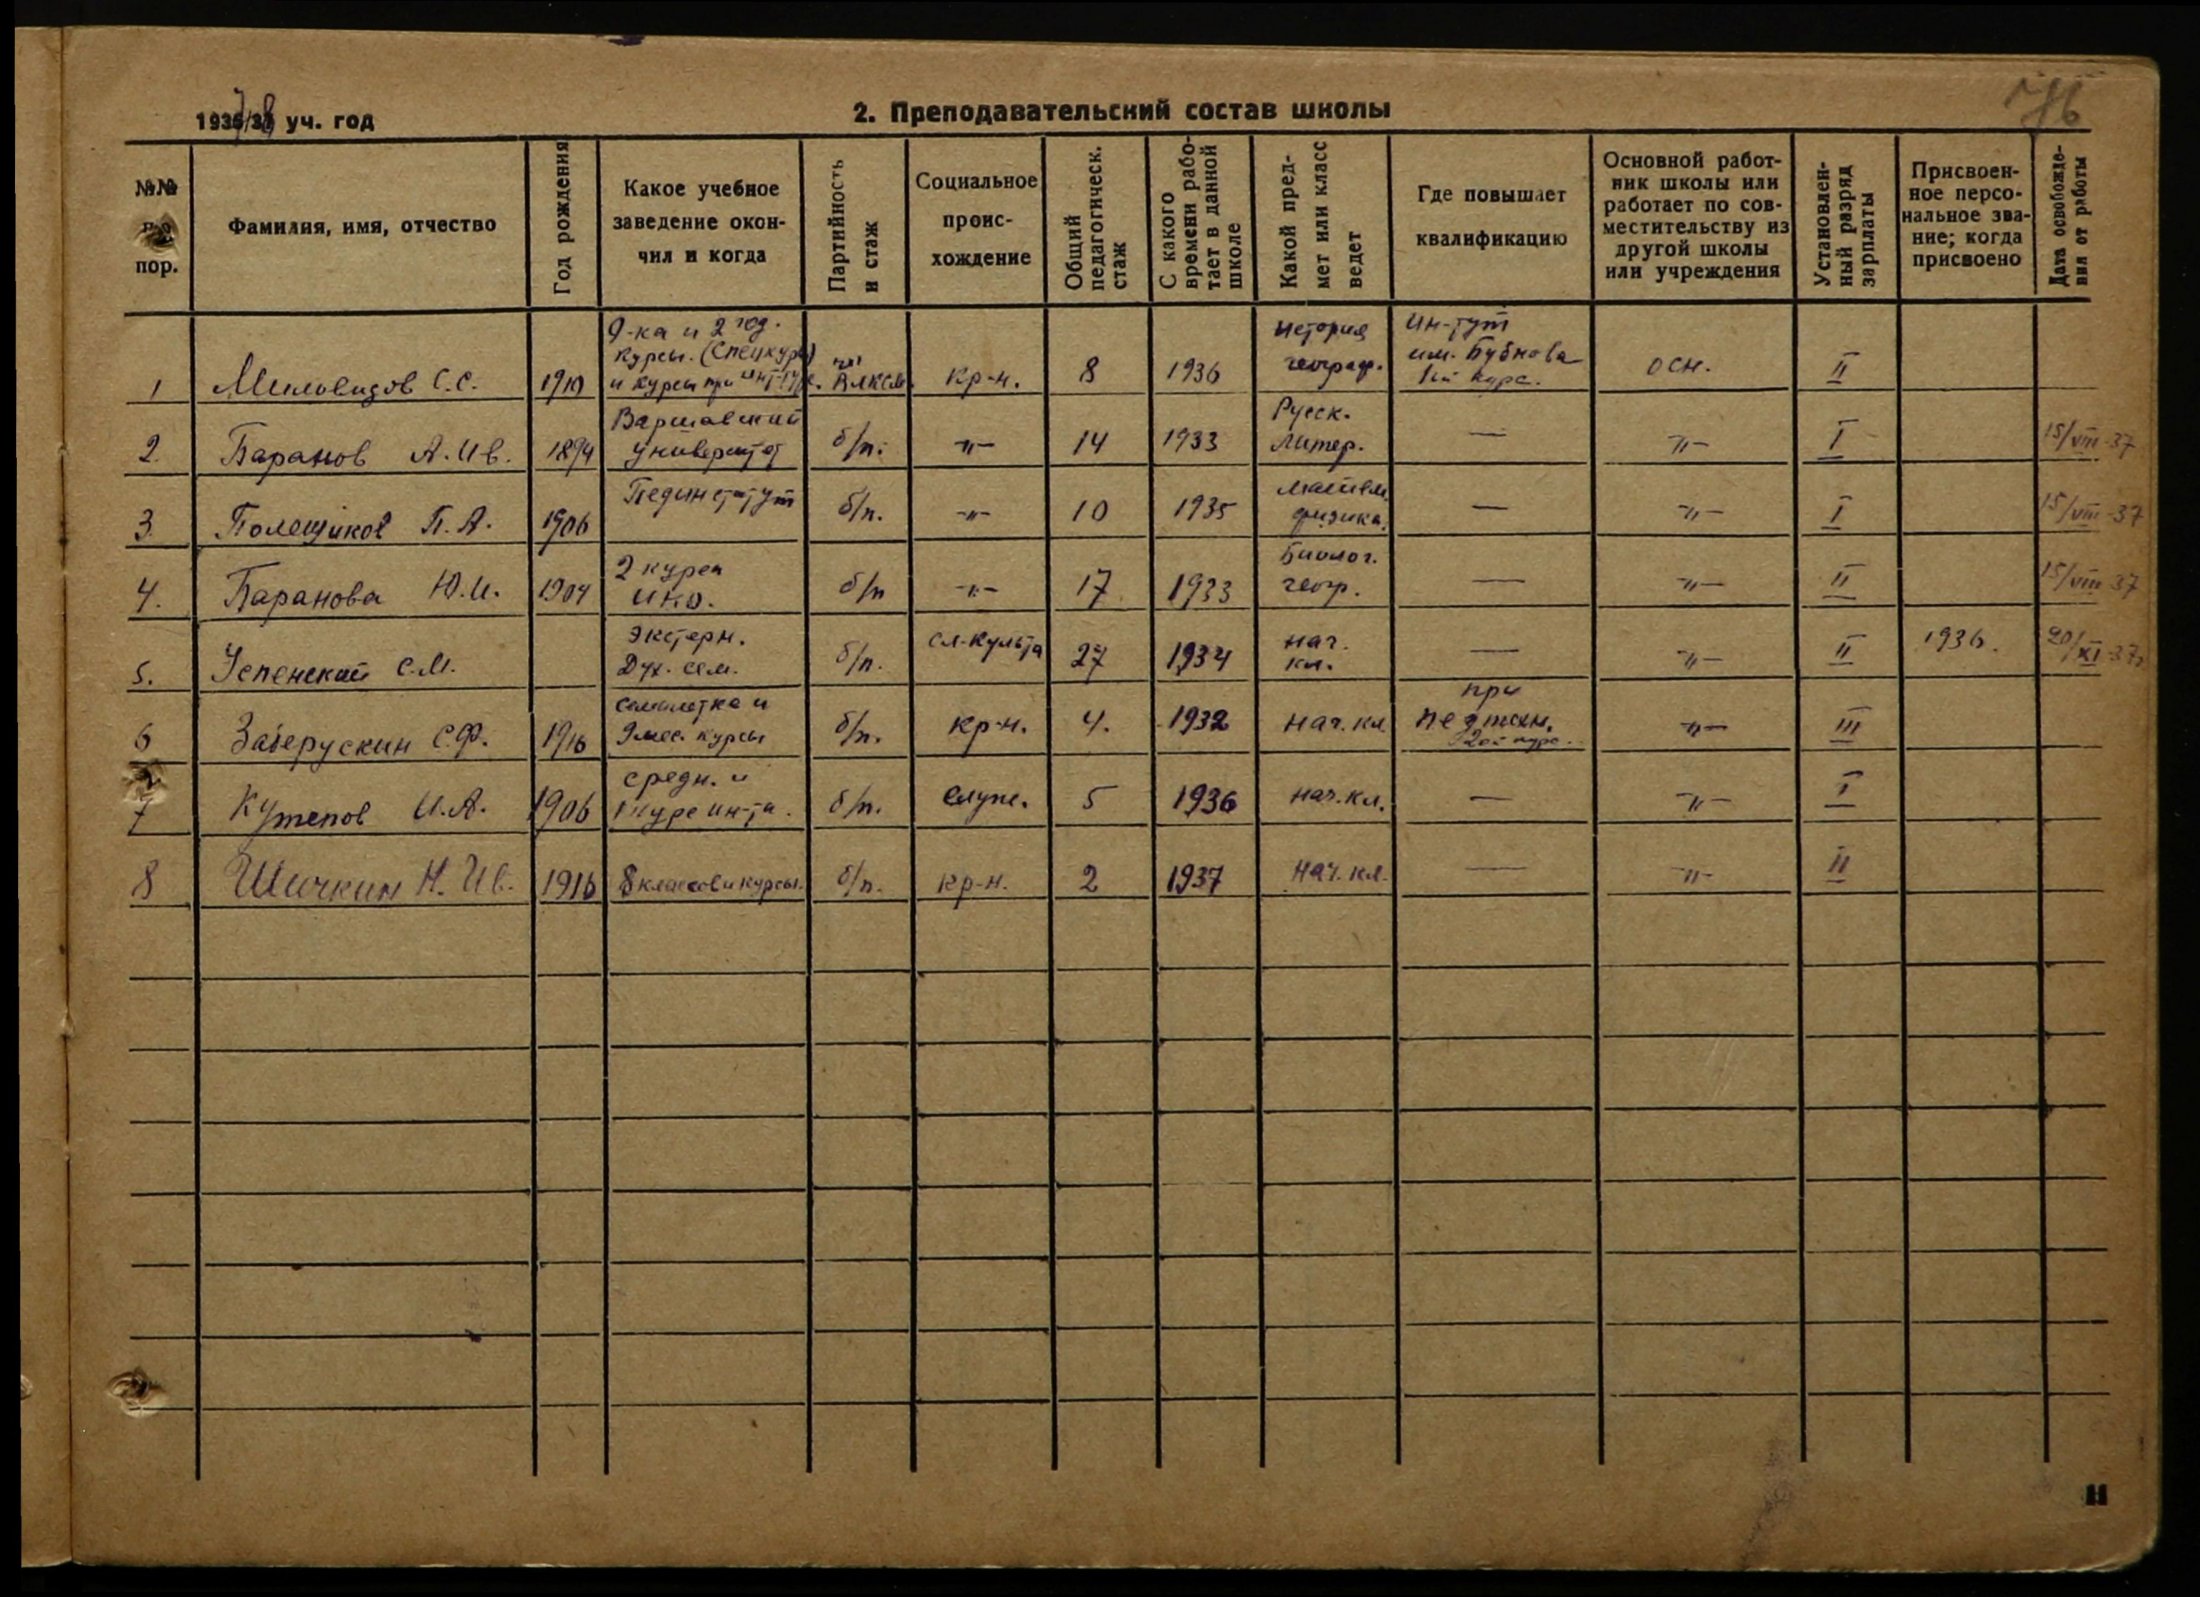 1937/38 уч. год
2. Преподавательский состав школы
76
№№ по пор.
Фамилия, имя, отчество
Год рождения
Какое учебное заведение окон-
чил и когда
Партийность и стаж
Социальное проис-
хождение
Общий педагогическ. стаж
С какого времени рабо-
тает в данной школе
Какой пред-
мет или класс ведет
Где повышает квалификацию
Основной работ-
ник школы или работает по сов-
местительству из другой школы или учреждения
Установлен-
ный разряд зарплаты
Присвоен-
ное персо-
нальное зва-
ние; когда присвоено
Дата освобожде-
ния от работы
1 Миловидов С.С. 1910 9-ка и 2 год. курсы. (Спецкурс) и курсы при ВЛКСМ кр-н. 8 1936 История географ. Ин-тут им. Бубнова 1ый курс. осн. II
2. Баранов А.Ив. 1894 Варшавский Университет б/п. -"- 14 1933 Русск. Литер. — -"- I 15/VIII-37
3. Полещиков П.А. 1906 Пединститут б/п. -"- 10 1935 Матем. физика. — -"- I 15/VIII-37
4. Баранова Ю.И. 1904 2 курса ИНО. б/п -"- 17 1933 Биолог. геогр. — -"- II 15/VIII-37
5. Успенский С.М. Экстерн. Дух. сем. б/п. сл-культа 27 1934 нач. кл. — -"- II 1936. 20/XI-37г
6 Заверускин С.Ф. 1916 семилетка и 9 мес. курсы б/п. кр-н. 4. 1932 нач. кл при педтехн. 2ой курс. -"- III
7 Кутепов И.А. 1906 средн. и 1 курс ин-та. б/п. служ. 5 1936 нач. кл. — -"- I
8 Шичкин Н. Ив. 1916 8 классов и курсы. б/п. кр-н. 2 1937 нач. кл. — -"- II
11